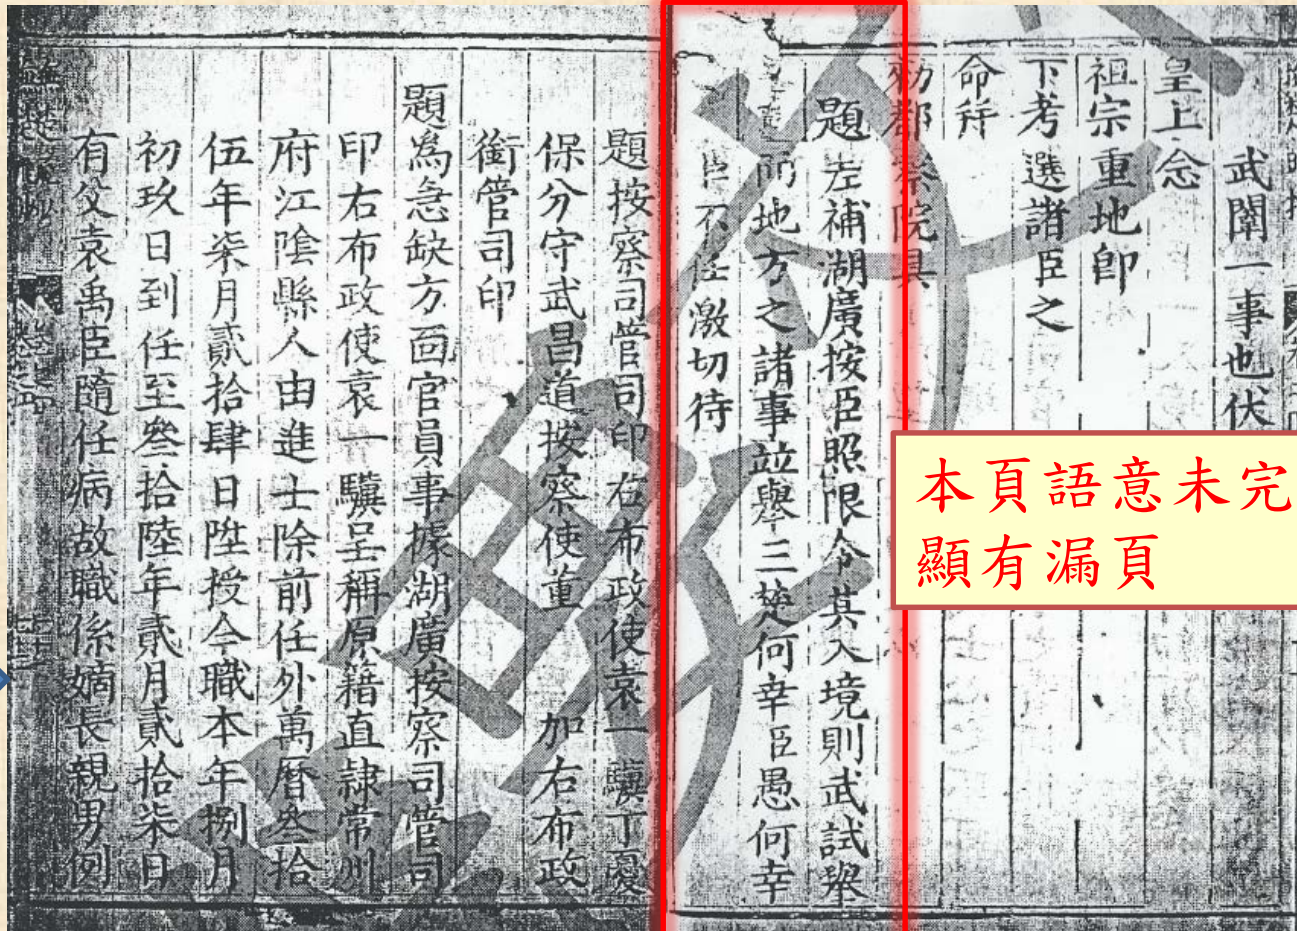 武闈一事也伏
皇上念
祖宗重地即
下考選諸臣之
命并
勑都察院具
題左補湖廣按臣照限令其入境則武試舉
而地方之諸事竝舉三楚何幸臣愚何幸
臣不任激切待
題按察司管司印右布政使袁一驥丁憂
保分守武昌道按察使董 加右布政
銜管司印
題爲急缺方面官員事據湖廣按察司管司
印右布政使袁一驥呈稱原籍直隸常州
府江陰縣人由進士除前任外萬曆叁拾
伍年柒月貳拾肆日陞授今職本年捌月
初玖日到任至叁拾陸年貳月貳拾柒日
有父袁禹臣隨任病故職係嫡長親男例
本頁語意未完
顯有漏頁